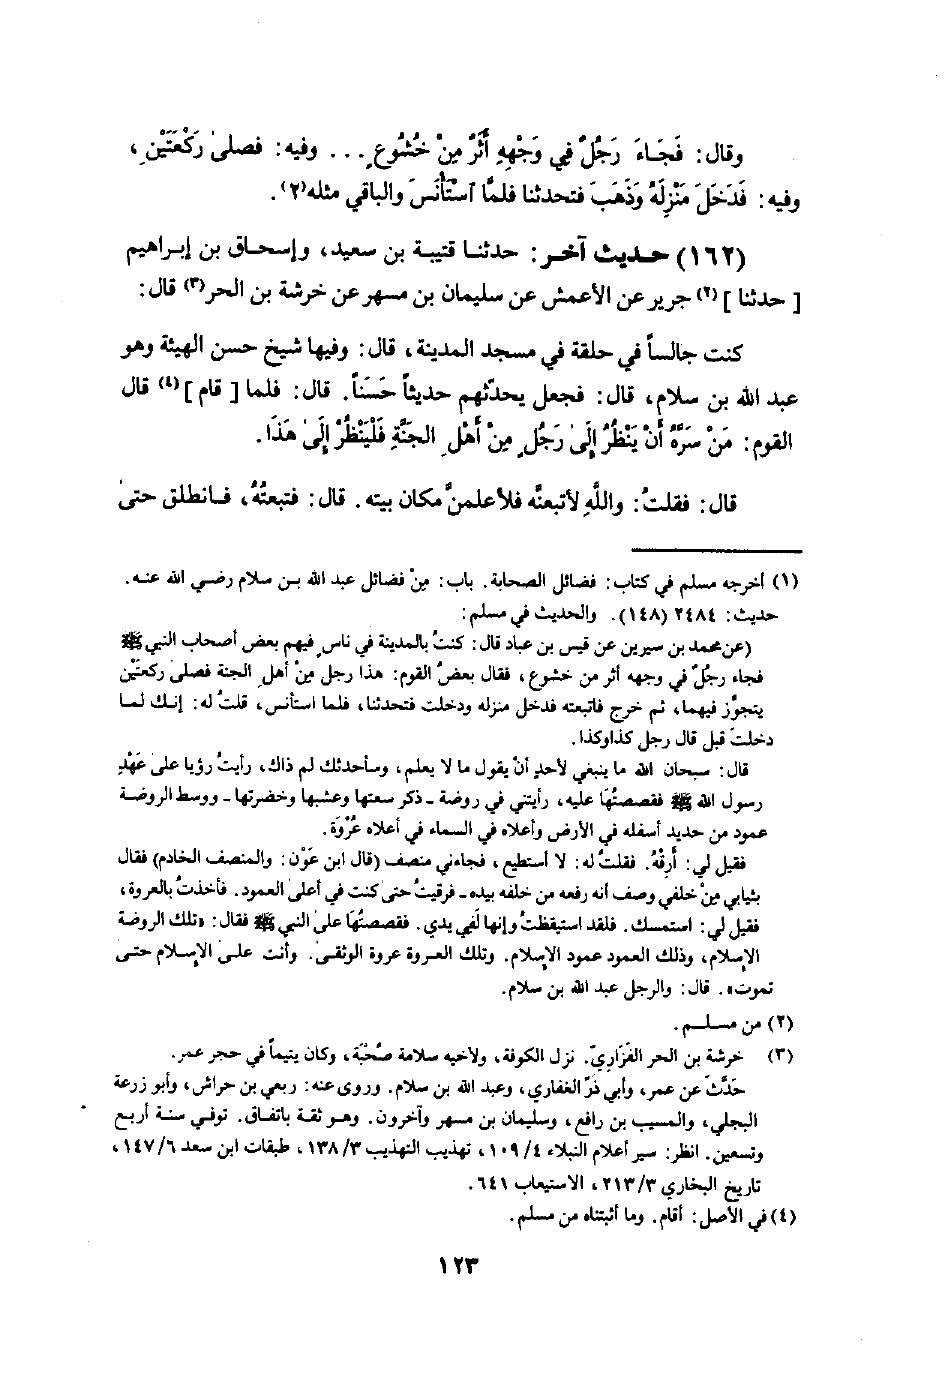 وقال: فَجَاءَ رَجُلٌ فِي وَجْهِهِ أَثَرٌ مِنْ خُشُوعٍ... وفيه: فصلىٰ رَكْعَتَيْنِ،
وفيه: فَدَخَلَ مَنْزِلَهُ وَذَهَبَ فتحدثنا فلمَّا آسْتَأنَسَ والباقي مثله(٢).
(١٦٢) حديث آخر: حدثنا قتيبة بن سعيد، وإسحاق بن إبراهيم
[حدثنا](٢) جرير عن الأعمش عن سليمان بن مسهر عن خرشة بن الحر(٣) قال:
كنت جالساً في حلقة في مسجد المدينة، قال: وفيها شيخ حسن الهيئة وهو
عبد الله بن سلام، قال: فجعل يحدّثهم حديثاً حَسَناً. قال: فلما [قام](٤) قال
القوم: مَنْ سَرَّهُ أَنْ يَنْظُرُ إِلَىٰ رَجُلٍ مِنْ أَهْلِ الجَنَّةِ فَلْيَنْظُرْ إِلَىٰ هَذَا.
قال: فقلتُ: واللَّهِ لأتبعنَّه فلأعلمنَّ مكان بيته. قال: فتبعتُهُ، فانطلق حتىٰ
(١) أخرجه مسلم في كتاب: فضائل الصحابة. باب: مِنْ فضائل عبد الله بن سلام رضي الله عنه.
حديث: ٢٤٨٤ (١٤٨). والحديث في مسلم:
(عن محمد بن سيرين عن قيس بن عباد قال: كنتُ بالمدينة في ناسٍ فيهم بعض أصحاب النبي ﷺ
فجاء رجلٌ في وجهه أثر من خشوع، فقال بعضُ القوم: هذا رجل مِنْ أهلِ الجنة فصلىٰ ركعتَيْن
يتجوَّز فيهما، ثم خرج فاتبعته فدخل منزله ودخلت فتحدثنا، فلما استأنس، قلتُ له: إنك لما
دخلتَ قبل قال رجل كذا وكذا.
قال: سبحان الله ما ينبغي لأحدٍ أنْ يقول ما لا يعلم، وسأحدثك لم ذاك، رأيتُ رؤيا علىٰ عَهْدِ
رسول الله ﷺ فقصصتُها عليه، رأيتني في روضة ـ ذكر سعتها وعشبها وخضرتها ـ ووسط الروضة
عمود من حديد أسفله في الأرض وأعلاه في السماء في أعلاه عُرْوَة.
فقيل لي: أَرِقْهُ. فقلتُ له: لا أستطيع، فجاءني منصف (قال ابن عَوْن: والمنصف الخادم) فقال
بثيابي مِنْ خلفي وصف أنه رفعه من خلفه بيده ـ فرقيتُ حتىٰ كنت في أعلىٰ العمود. فأخذتُ بالعروة،
فقيل لي: استمسك. فلقد استيقظتُ وإنها لَفي يدي. فقصصتُها علىٰ النبي ﷺ فقال: «تلك الروضة
الإسلام، وذلك العمود عمود الإسلام. وتلك العروة عروة الوثقىٰ. وأنت علىٰ الإسلام حتىٰ
تموت». قال: والرجل عبد الله بن سلام.
(٢) من مسلم.
(٣) خرشة بن الحر الفَزَاريّ. نزل الكوفة، ولأخيه سلامة صُحْبَة، وكان يتيماً في حجر عمر.
حَدَّثَ عن عمر، وأبي ذَرّ الغفاري، وعبد الله بن سلام. وروى عنه: ربعي بن حراش، وأبو زرعة
البجلي، والمسيب بن رافع، وسليمان بن مسهر وآخرون. وهو ثقة باتفاق. توفي سنة أربع
وتسعين. انظر: سير أعلام النبلاء ٤/ ١٠٩، تهذيب التهذيب ٣/ ١٣٨، طبقات ابن سعد ٦/ ١٤٧،
تاريخ البخاري ٣/ ٢١٣، الاستيعاب ٦٤١.
(٤) في الأصل: أقام. وما أثبتناه من مسلم.
١٢٣